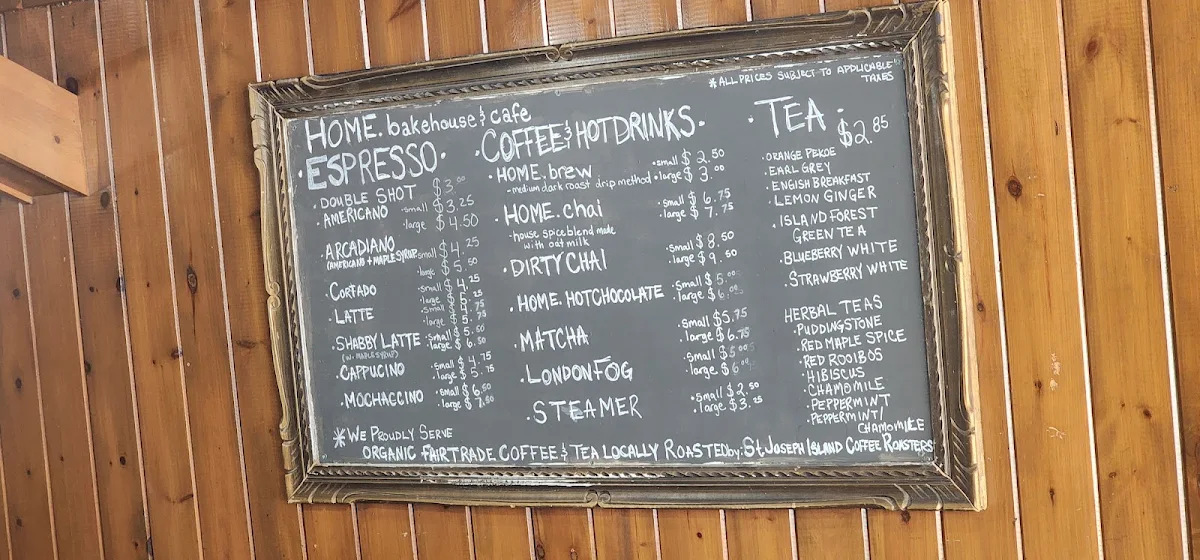 *ALL PRICES SUBJECT TO APPLICABLE
TAXES
HOME. bakehouse & cafe
·ESPRESSO·
·DOUBLE SHOT $3.00
·AMERICANO ·small $3.25
·large $4.50
·ARCADIANO ·small $4.25
(AMERICANO + MAPLE SYRUP)
·large $5.50
·CORTADO ·small
·large
·LATTE ·small
·large
·SHABBY LATTE ·small
(W/ MAPLE SYRUP) ·large $6.50
·CAPPUCINO ·small $4.75
·large $5.75
·MOCHACCINO ·small $6.50
·large $7.50
·COFFEE & HOT DRINKS·
·HOME. brew ·small $2.50
·medium dark roast drip method ·large $3.00
·HOME. chai ·small $6.75
·large $7.75
-house spice blend made
with oat milk
·DIRTY CHAI ·small $8.50
·large $9.50
·HOME. HOTCHOCOLATE ·small $5.00
·large $6.00
·MATCHA ·small $5.75
·large $6.75
·LONDON FOG ·small $5.00
·large $6.00
·STEAMER ·small $2.50
·large $3.25
·TEA· $2.85
·ORANGE PEKOE
·EARL GREY
·ENGISH BREAKFAST
·LEMON GINGER
·ISLAND FOREST
GREEN TEA
·BLUEBERRY WHITE
·STRAWBERRY WHITE
HERBAL TEAS
·PUDDINGSTONE
·RED MAPLE SPICE
·RED ROOIBOS
·HIBISCUS
·CHAMOMILE
·PEPPERMINT
·PEPPERMINT/
CHAMOMILE
*WE PROUDLY SERVE
ORGANIC FAIRTRADE COFFEE & TEA LOCALLY ROASTED by: St. JOSEPH ISLAND COFFEE ROASTERS